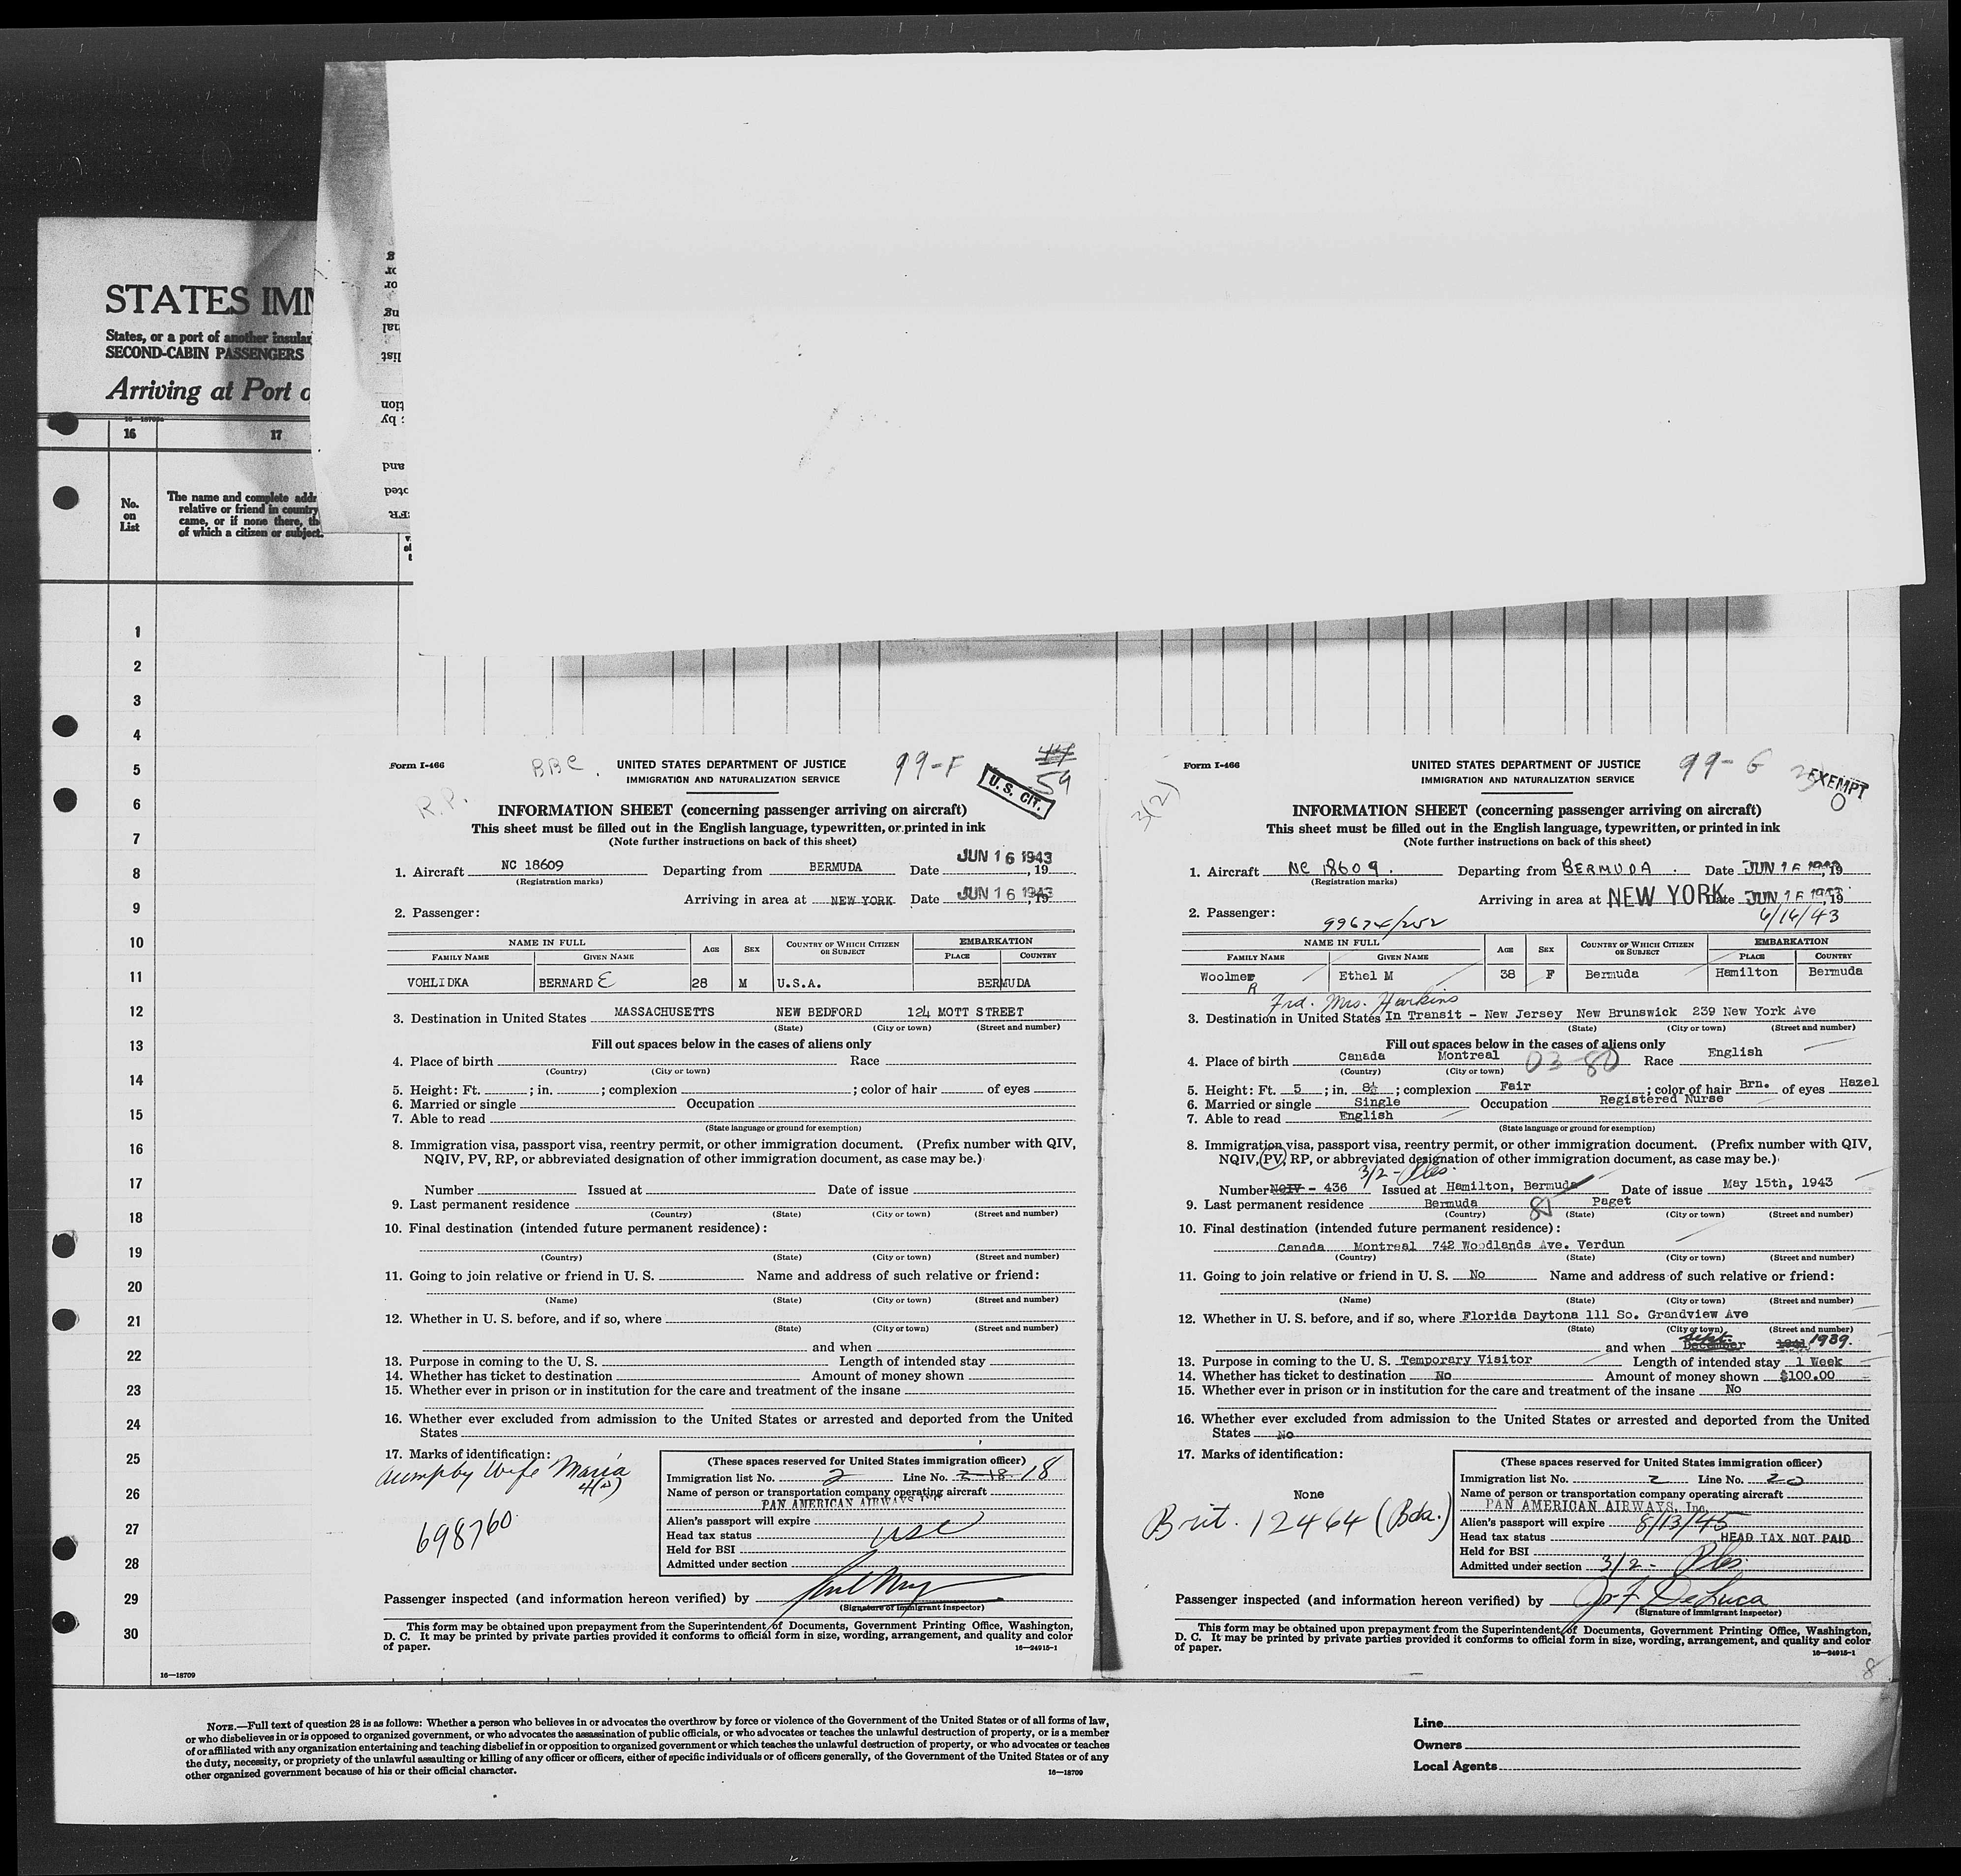 STATES IMM
States, or a port of another insular
SECOND-CABIN PASSENGERS
Arriving at Port o
16
17
No.
on
List
The name and complete addr
relative or friend in country
came, or if none there, th
of which a citizen or subject.
1
2
3
4
5
6
7
8
9
10
11
12
13
14
15
16
17
18
19
20
21
22
23
24
25
26
27
28
29
30
16—18709
Form I-466
BBC.
R.P.
UNITED STATES DEPARTMENT OF JUSTICE
IMMIGRATION AND NATURALIZATION SERVICE
99-F
U. S. CIT.
59
INFORMATION SHEET (concerning passenger arriving on aircraft)
This sheet must be filled out in the English language, typewritten, or printed in ink
(Note further instructions on back of this sheet)
1. Aircraft NC 18609 Departing from BERMUDA Date JUN 16 1943, 19
(Registration marks)
Arriving in area at NEW YORK Date JUN 16 1943, 19
2. Passenger:
NAME IN FULL AGE SEX COUNTRY OF WHICH CITIZEN OR SUBJECT EMBARKATION
FAMILY NAME GIVEN NAME PLACE COUNTRY
VOHLIDKA BERNARD E 28 M U.S.A. BERMUDA
3. Destination in United States MASSACHUSETTS NEW BEDFORD 124 MOTT STREET
(State) (City or town) (Street and number)
Fill out spaces below in the cases of aliens only
4. Place of birth Race
(Country) (City or town)
5. Height: Ft. ; in. ; complexion ; color of hair of eyes
6. Married or single Occupation
7. Able to read
(State language or ground for exemption)
8. Immigration visa, passport visa, reentry permit, or other immigration document. (Prefix number with QIV,
NQIV, PV, RP, or abbreviated designation of other immigration document, as case may be.)
Number Issued at Date of issue
9. Last permanent residence
(Country) (State) (City or town) (Street and number)
10. Final destination (intended future permanent residence):
(Country) (State) (City or town) (Street and number)
11. Going to join relative or friend in U. S. Name and address of such relative or friend:
(Name) (State) (City or town) (Street and number)
12. Whether in U. S. before, and if so, where
(State) (City or town) (Street and number)
and when
13. Purpose in coming to the U. S. Length of intended stay
14. Whether has ticket to destination Amount of money shown
15. Whether ever in prison or in institution for the care and treatment of the insane
16. Whether ever excluded from admission to the United States or arrested and deported from the United
States
17. Marks of identification:
accmp by Wife Maria
4(2)
698760
(These spaces reserved for United States immigration officer)
Immigration list No. 2 Line No. 2-18 18
Name of person or transportation company operating aircraft
PAN AMERICAN AIRWAYS INC
Alien's passport will expire
Head tax status USC
Held for BSI
Admitted under section
Passenger inspected (and information hereon verified) by
(Signature of immigrant inspector)
This form may be obtained upon prepayment from the Superintendent of Documents, Government Printing Office, Washington,
D. C. It may be printed by private parties provided it conforms to official form in size, wording, arrangement, and quality and color
of paper.
16—24915-1
Form I-466
3(2)
UNITED STATES DEPARTMENT OF JUSTICE
IMMIGRATION AND NATURALIZATION SERVICE
99-G
EXEMPT
INFORMATION SHEET (concerning passenger arriving on aircraft)
This sheet must be filled out in the English language, typewritten, or printed in ink
(Note further instructions on back of this sheet)
1. Aircraft NC 18609. Departing from BERMUDA. Date JUN 16 1943, 19
(Registration marks)
Arriving in area at NEW YORK Date JUN 16 1943, 19
2. Passenger: 6/16/43
99674/252
NAME IN FULL AGE SEX COUNTRY OF WHICH CITIZEN OR SUBJECT EMBARKATION
FAMILY NAME GIVEN NAME PLACE COUNTRY
Woolmer Ethel M 38 F Bermuda Hamilton Bermuda
R
Frd. Mrs. Harkins
3. Destination in United States In Transit - New Jersey New Brunswick 239 New York Ave
(State) (City or town) (Street and number)
Fill out spaces below in the cases of aliens only
4. Place of birth Canada Montreal 03-80 Race English
(Country) (City or town)
5. Height: Ft. 5 ; in. 8½ ; complexion Fair ; color of hair Brn. of eyes Hazel
6. Married or single Single Occupation Registered Nurse
7. Able to read English
(State language or ground for exemption)
8. Immigration visa, passport visa, reentry permit, or other immigration document. (Prefix number with QIV,
NQIV, PV, RP, or abbreviated designation of other immigration document, as case may be.)
3/2 - Ples.
Number NQIV - 436 Issued at Hamilton, Bermuda Date of issue May 15th, 1943
9. Last permanent residence Bermuda Paget
(Country) (State) (City or town) (Street and number)
10. Final destination (intended future permanent residence):
Canada Montreal 742 Woodlands Ave. Verdun
(Country) (State) (City or town) (Street and number)
11. Going to join relative or friend in U. S. No Name and address of such relative or friend:
(Name) (State) (City or town) (Street and number)
12. Whether in U. S. before, and if so, where Florida Daytona 111 So. Grandview Ave
(State) (City or town) (Street and number)
and when December Sept. 1941 1939.
13. Purpose in coming to the U. S. Temporary Visitor Length of intended stay 1 Week
14. Whether has ticket to destination No Amount of money shown $100.00
15. Whether ever in prison or in institution for the care and treatment of the insane No
16. Whether ever excluded from admission to the United States or arrested and deported from the United
States No
17. Marks of identification:
None
Brit. 12464 (Bda.)
(These spaces reserved for United States immigration officer)
Immigration list No. 2 Line No. 20
Name of person or transportation company operating aircraft
PAN AMERICAN AIRWAYS, Inc.
Alien's passport will expire 8/13/45
Head tax status HEAD TAX NOT PAID
Held for BSI
Admitted under section 3/2 - Ples
Passenger inspected (and information hereon verified) by J. F. DeLuca
(Signature of immigrant inspector)
This form may be obtained upon prepayment from the Superintendent of Documents, Government Printing Office, Washington,
D. C. It may be printed by private parties provided it conforms to official form in size, wording, arrangement, and quality and color
of paper.
16—24915-1
8
NOTE.—Full text of question 28 is as follows: Whether a person who believes in or advocates the overthrow by force or violence of the Government of the United States or of all forms of law,
or who disbelieves in or is opposed to organized government, or who advocates the assassination of public officials, or who advocates or teaches the unlawful destruction of property, or is a member
of or affiliated with any organization entertaining and teaching disbelief in or opposition to organized government or which teaches the unlawful destruction of property, or who advocates or teaches
the duty, necessity, or propriety of the unlawful assaulting or killing of any officer or officers, either of specific individuals or of officers generally, of the Government of the United States or of any
other organized government because of his or their official character.
16—18709
Line
Owners
Local Agents